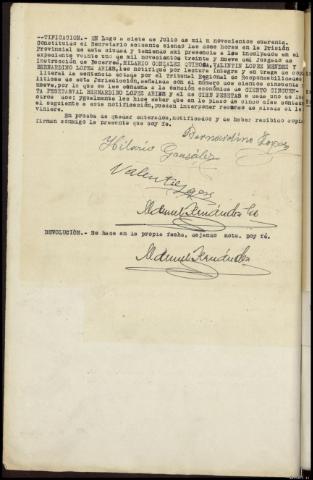 --TIFICACION.- En Lugo a siete de Julio de mil novecientos cuarenta
Constituido el Secretario sienes las doce horas en la Prisión
Provincial de esta ciudad y teniendo a mi presencia a los inculpados en el
expediente veinte uno de mil novecientos treinta y nueve del Juzgado de
Instrucción de Becerreá, HILARIO GONZALEZ QUIROGA, VALENTIN LOPEZ MENDEZ Y
BERNARDINO LOPEZ ARIAS, les notifiqué por lectura íntegra y entrega de copia
literal la sentencia dictada por el Tribunal Regional de Responsabilidades
líticas de esta jurisdicción, señalada con el número dos cientos cincuenta
nueve, por la que se condena a la sanción económica de CIENTO CINCUEN-
TA PESETAS AL BERNARDINO LOPEZ ARIAS y el de CIEN PESETAS a cada uno de los
otros dos; igualmente les hice saber que en el plazo de cinco días contados
el siguiente a esta notificación, pueden interponer recurso de alzada si les
viniere.
En prueba de quedar enterados, notificados y de haber recibido copia
firman conmigo la presente que doy fé.
Bernardino Lopez
Hilario González
Valentin Lopez
Manuel Fernández
DEVOLUCIÓN.- Se hace en la propia fecha, dejando nota. Doy fé.
Manuel Fernández